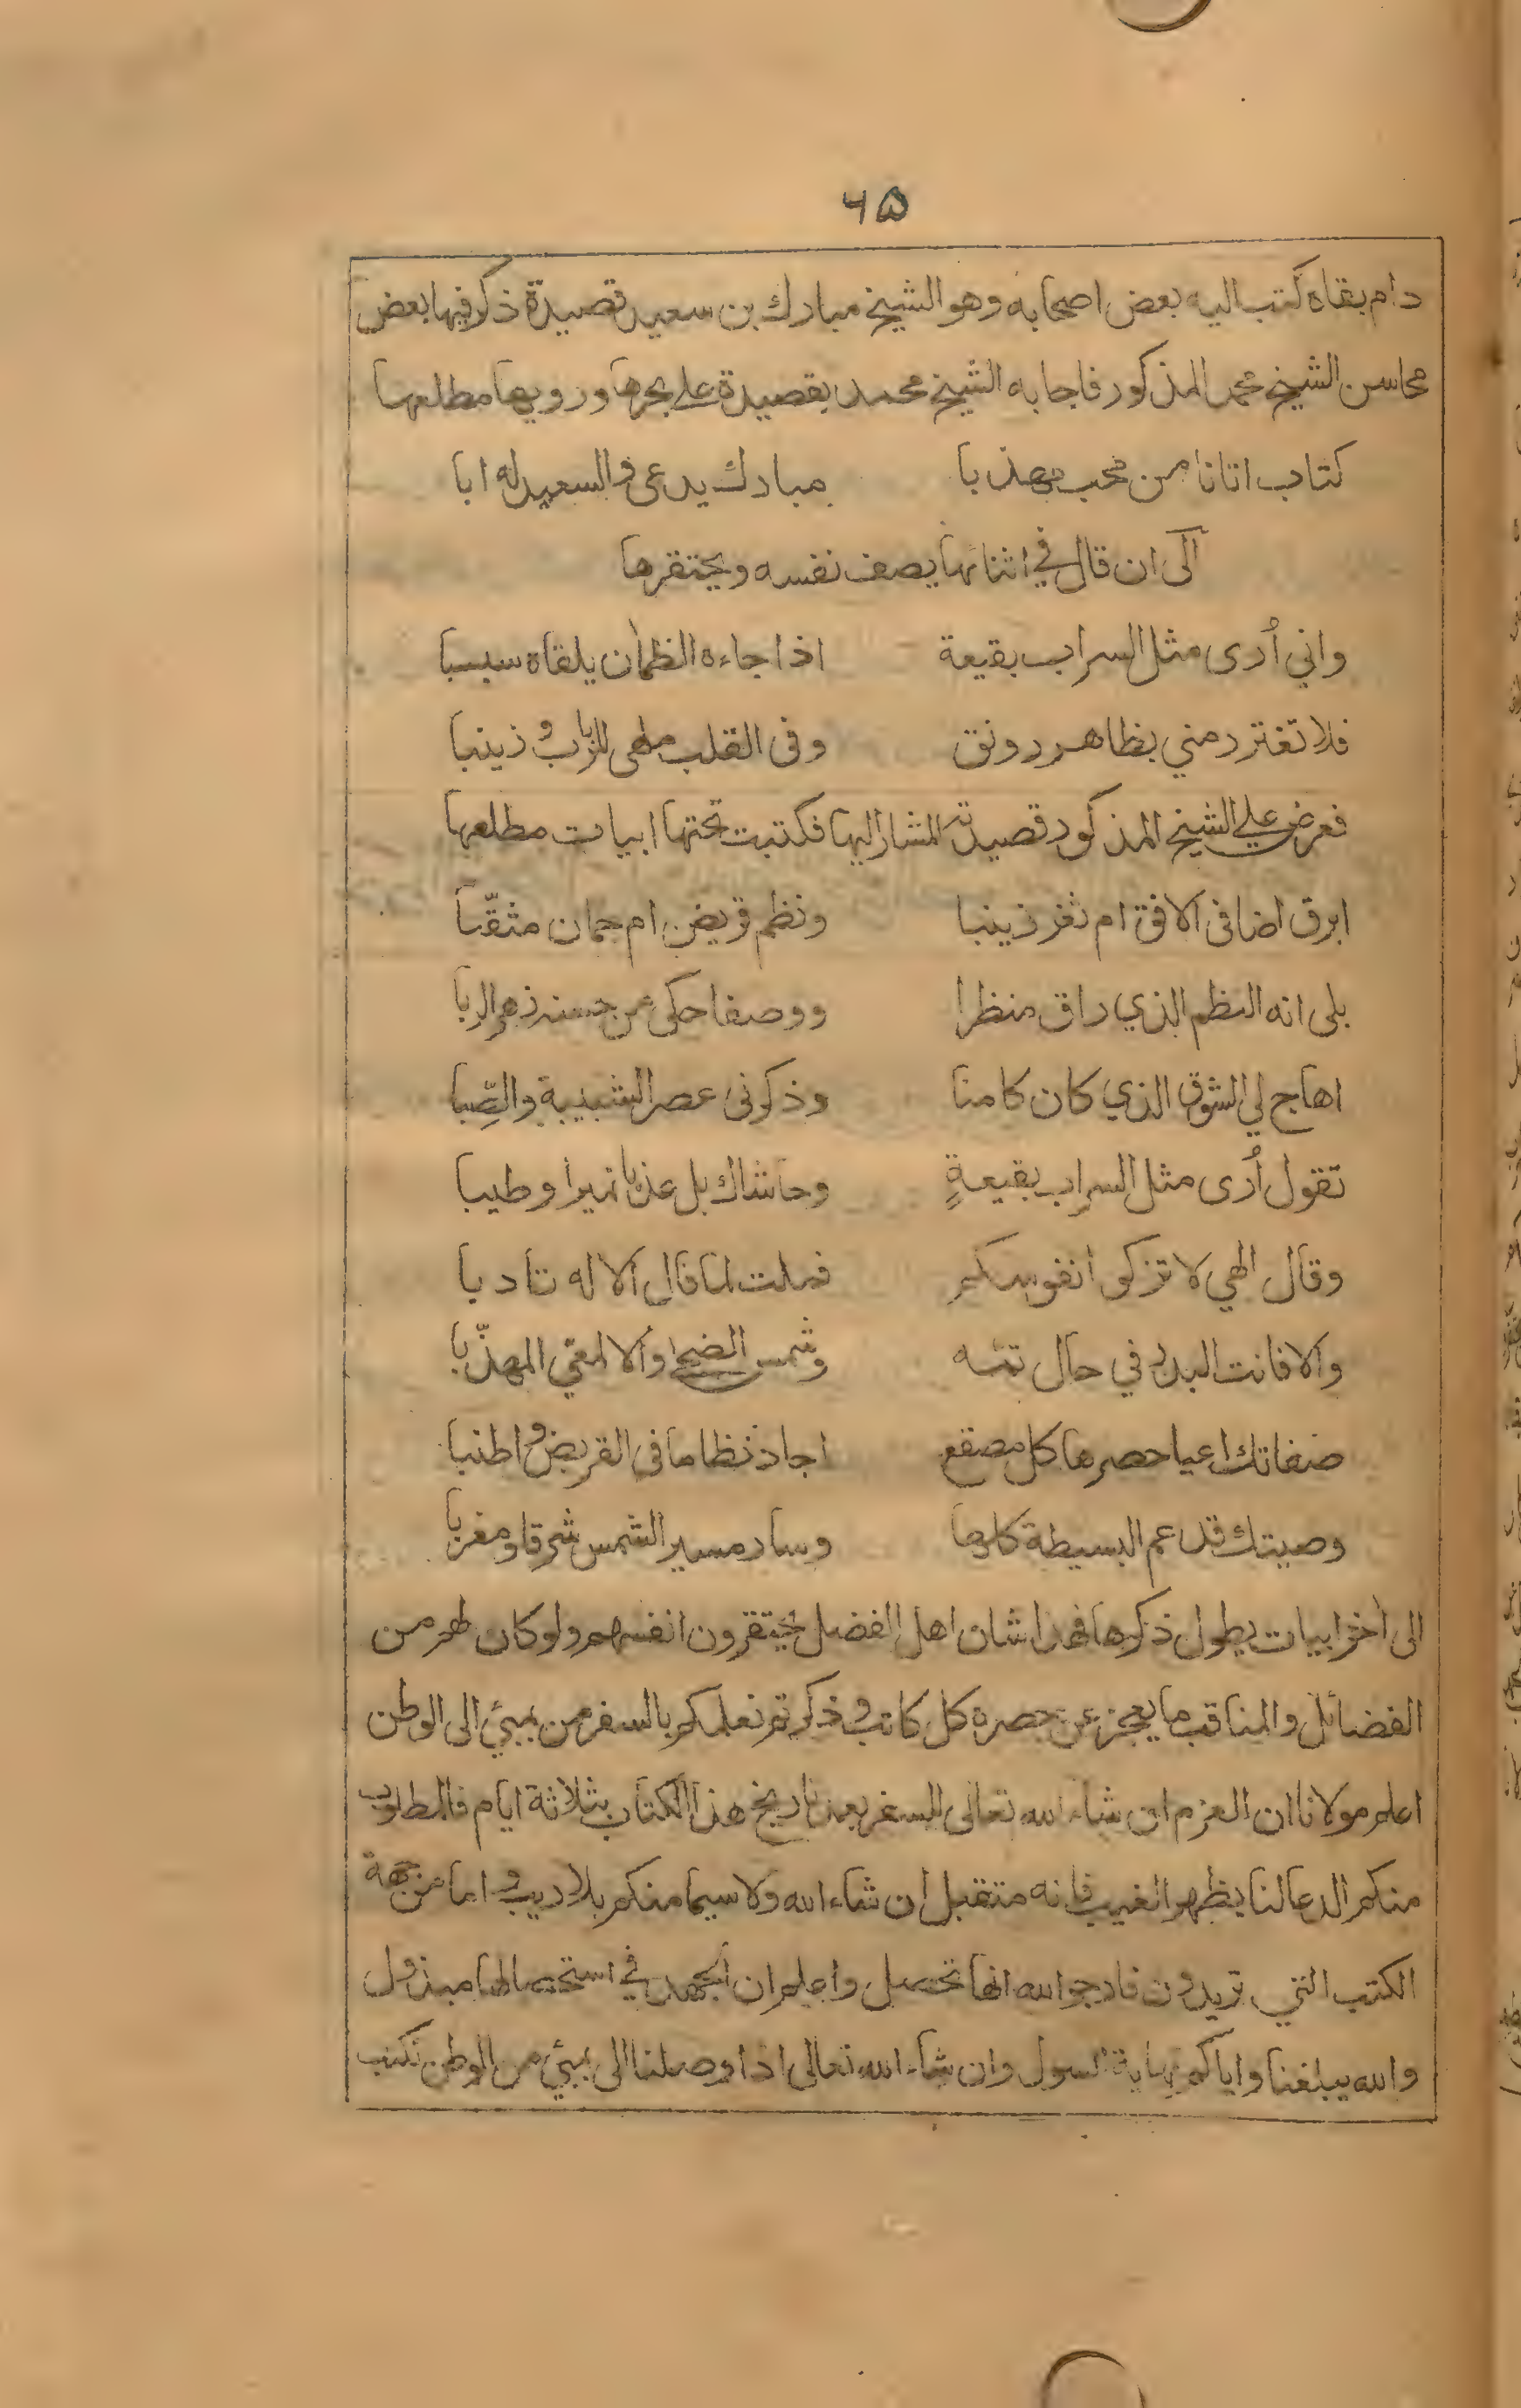 ٦٥
دام بقاه كتب اليه بعض اصحابه وهو الشيخ مبارك بن سعيد قصيدة ذكر فيها بعض
محاسن الشيخ محمد المذكور فاجابه الشيخ محمد بقصيدة على بحرها ورويها مطلعها
كتاب اتانا من محب مهذبا مبارك يدعى والسعيد له ابا
الى ان قال في اثنائها يصف نفسه ويحتقرها
واني أرى مثل السراب بقيعة اذا جاءه الظمأن يلقاه سبسبا
فلا تغترر مني بظاهر رونق وفى القلب ملهى للرباب وزينبا
فعرض علي الشيخ المذكور قصيدته المشار اليها فكتبت تحتها ابيات مطلعها
ابرق اضا فى الافق ام ثغر زينبا ونظم قريض ام جمان مثقّبا
بلى انه النظم الذي راق منظرا ووصفا حكى عن حسنه زهر الربا
اهاج لي الشوق الذي كان كامنا وذكرنى عصر الشبيبة والصِّبا
تقول أرى مثل السراب بقيعةٍ وحاشاك بل عذبا نميرا وطيبا
وقال الهي لا تزكوا انفوسكم فملت لما قال الاله تادبا
والا فانت البدر في حال تمه وشمس الضحى والالمعي المهذّبا
صفاتك اعيا حصرها كل مصقع اجاد نظاما فى القريض واطنبا
وصيتك قد عم البسيطة كلها وسار مسير الشمس شرقا ومغربا
الى أخر ابيات يطول ذكرها فهذا شان اهل الفضل يحتقرون انفسهم ولو كان لهم من
الفضائل والمناقب ما يعجز عن حصره كل كاتب وذكرتم نعلمكم بالسفر من بمبئ الى الوطن
اعلم مولانا ان العزم ان شاء الله تعالى للسفر بعد تاريخ هذا الكتاب بثلاثة ايام فالمطلوب
منكم الدعا لنا بظهر الغيب فانه متقبل ان شاء الله ولا سيما منكم بلا ريب واما من جهة
الكتب التي تريدون فارجو الله انها تحصل واعلم ان الجهد في استحصالها مبذول
والله يبلغنا واياكم نهاية السول وان شاء الله تعالى اذا وصلنا الى بمبئ من الوطن نكتب